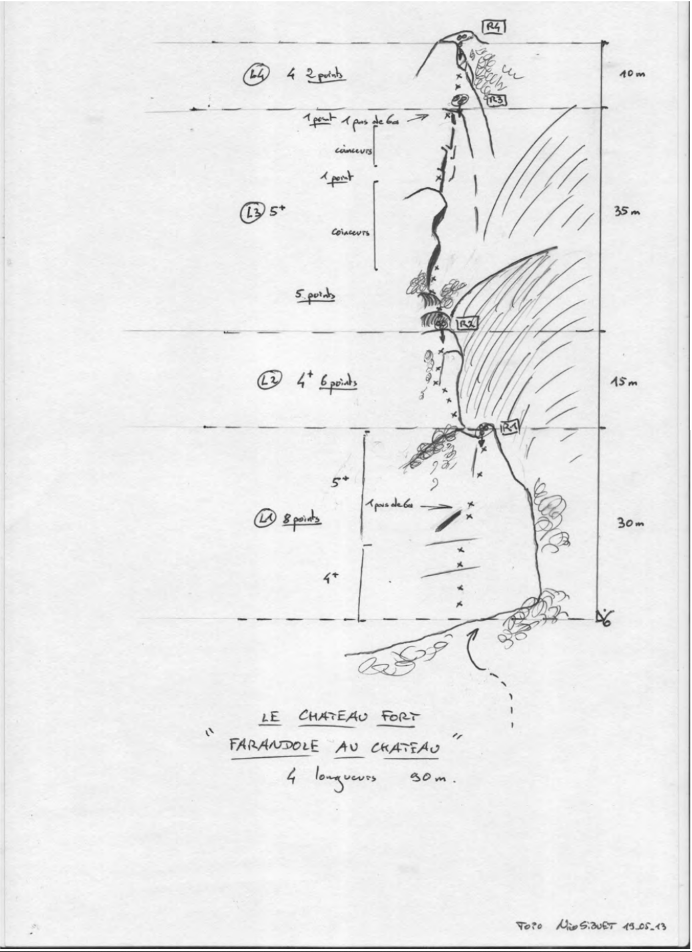 R4
L4 4 2 points
10m
R3
1 point 1 pas de 6a
coinceurs
1 point
L3 5+
35m
coinceurs
5 points
R2
L2 4+ 6 points
15m
R1
5+
1 pas de 6a
L1 8 points
30m
4+
LE CHATEAU FORT
"FARANDOLE AU CHATEAU"
4 longueurs 90m.
TOPO 19.05.13